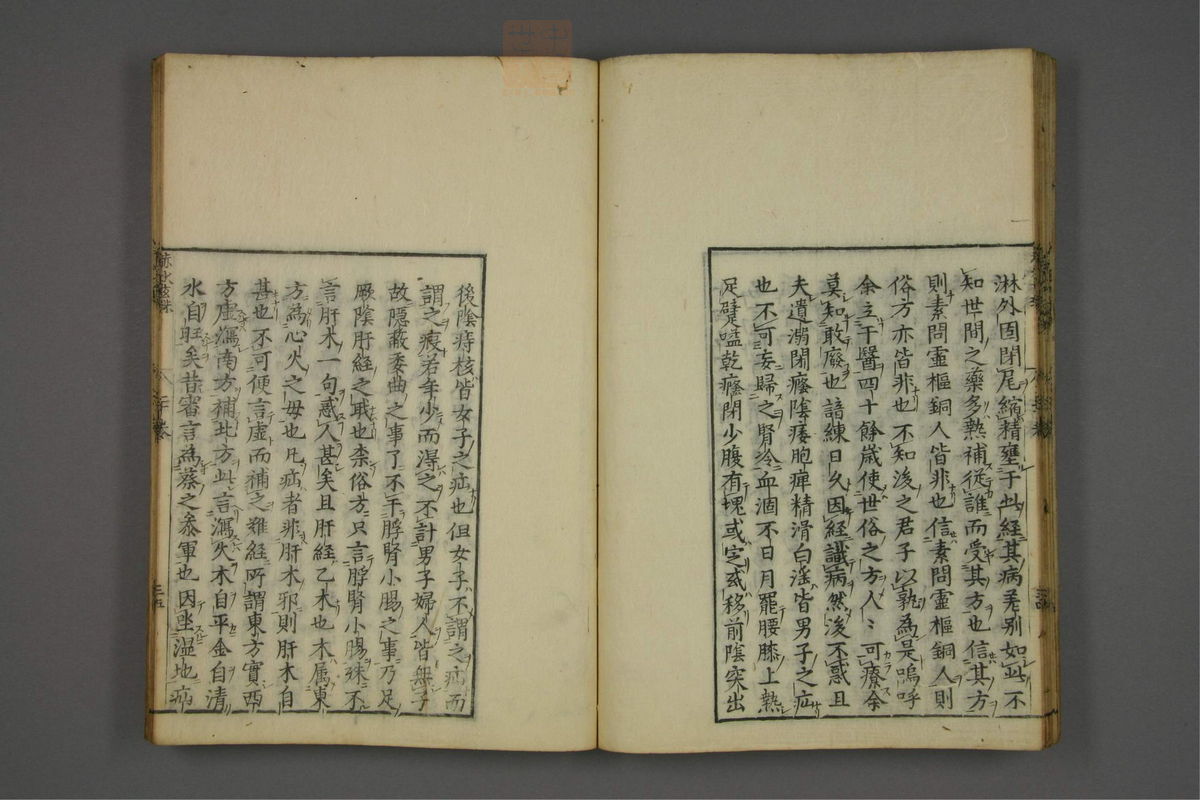 淋外固閉尾縮精壅于此經其病差別如此不
知世間之藥多熱補從誰而受其方也信其方
則素問靈樞銅人皆非也信素問靈樞銅人則
俗方亦皆非也不知後之君子以孰為是嗚呼
余立于醫四十餘歲使世俗之方人〻可療余
莫知敢廢也諳練日久因經識病然後不惑且
夫遺溺閉癃陰痿胞痺精滑白淫皆男子之疝
也不可妄歸之腎冷血涸不日月罷腰膝上熱
足躄嗌乾癃閉少腹有塊或定或移前陰突出
後陰痔核皆女子之疝也但女子不謂之疝而
謂之瘕若年少而得之不計男子婦人皆無子
故隠蔽委曲之事了不干脬腎小腸之事乃足
厥陰肝經之職也柰俗方只言脬腎小腸殊不
言肝木一句惑人甚矣且肝經乙木也木属東
方為心火之母也凡疝者非肝木邪則肝木自
甚也不可便言虛而補之難經所謂東方實西
方虛瀉南方補北方此言瀉火木自平金自清
水自旺矣昔審言為蔡之叅軍也因坐濕地疝